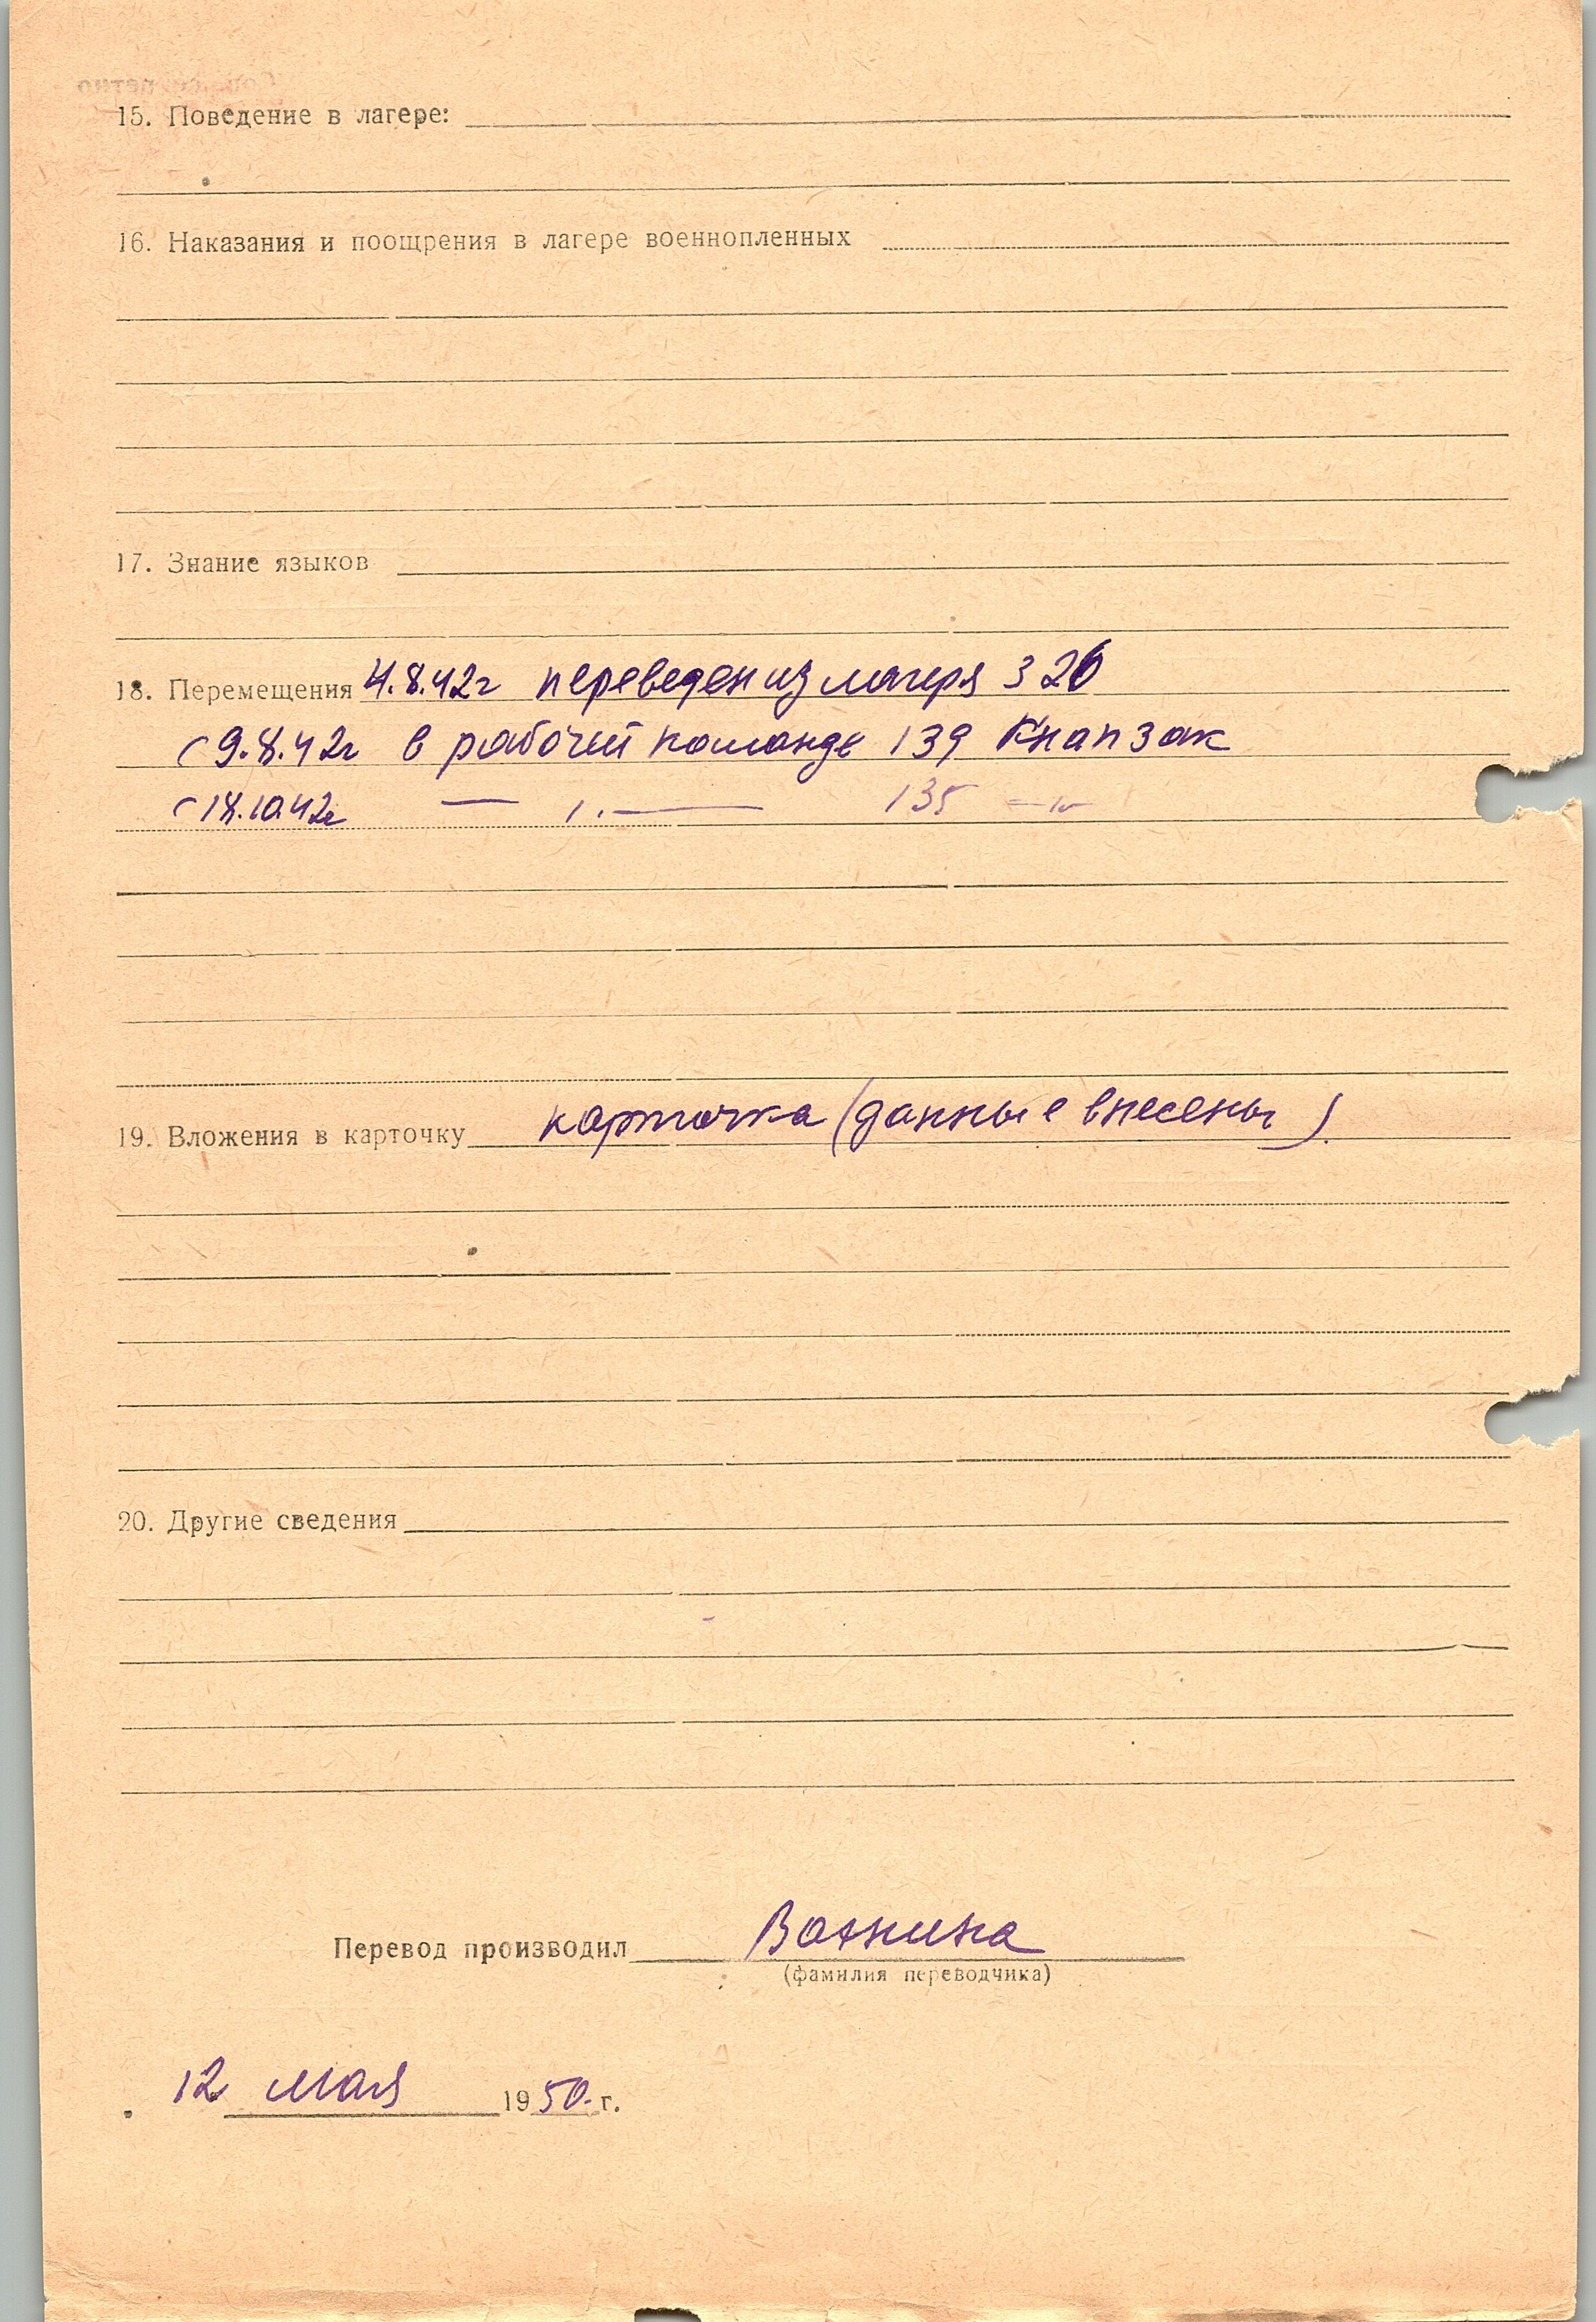 15. Поведение в лагере:
16. Наказания и поощрения в лагере военнопленных
17. Знание языков
18. Перемещения 4.8.42г переведен из лагеря 326
с 9.8.42г в рабочей команде 139 Кнапзак
с 18.10.42г — 1. — 135 — " —
19. Вложения в карточку карточка (данные внесены).
20. Другие сведения
Перевод производил
(фамилия переводчика)
12 мая 1950 г.